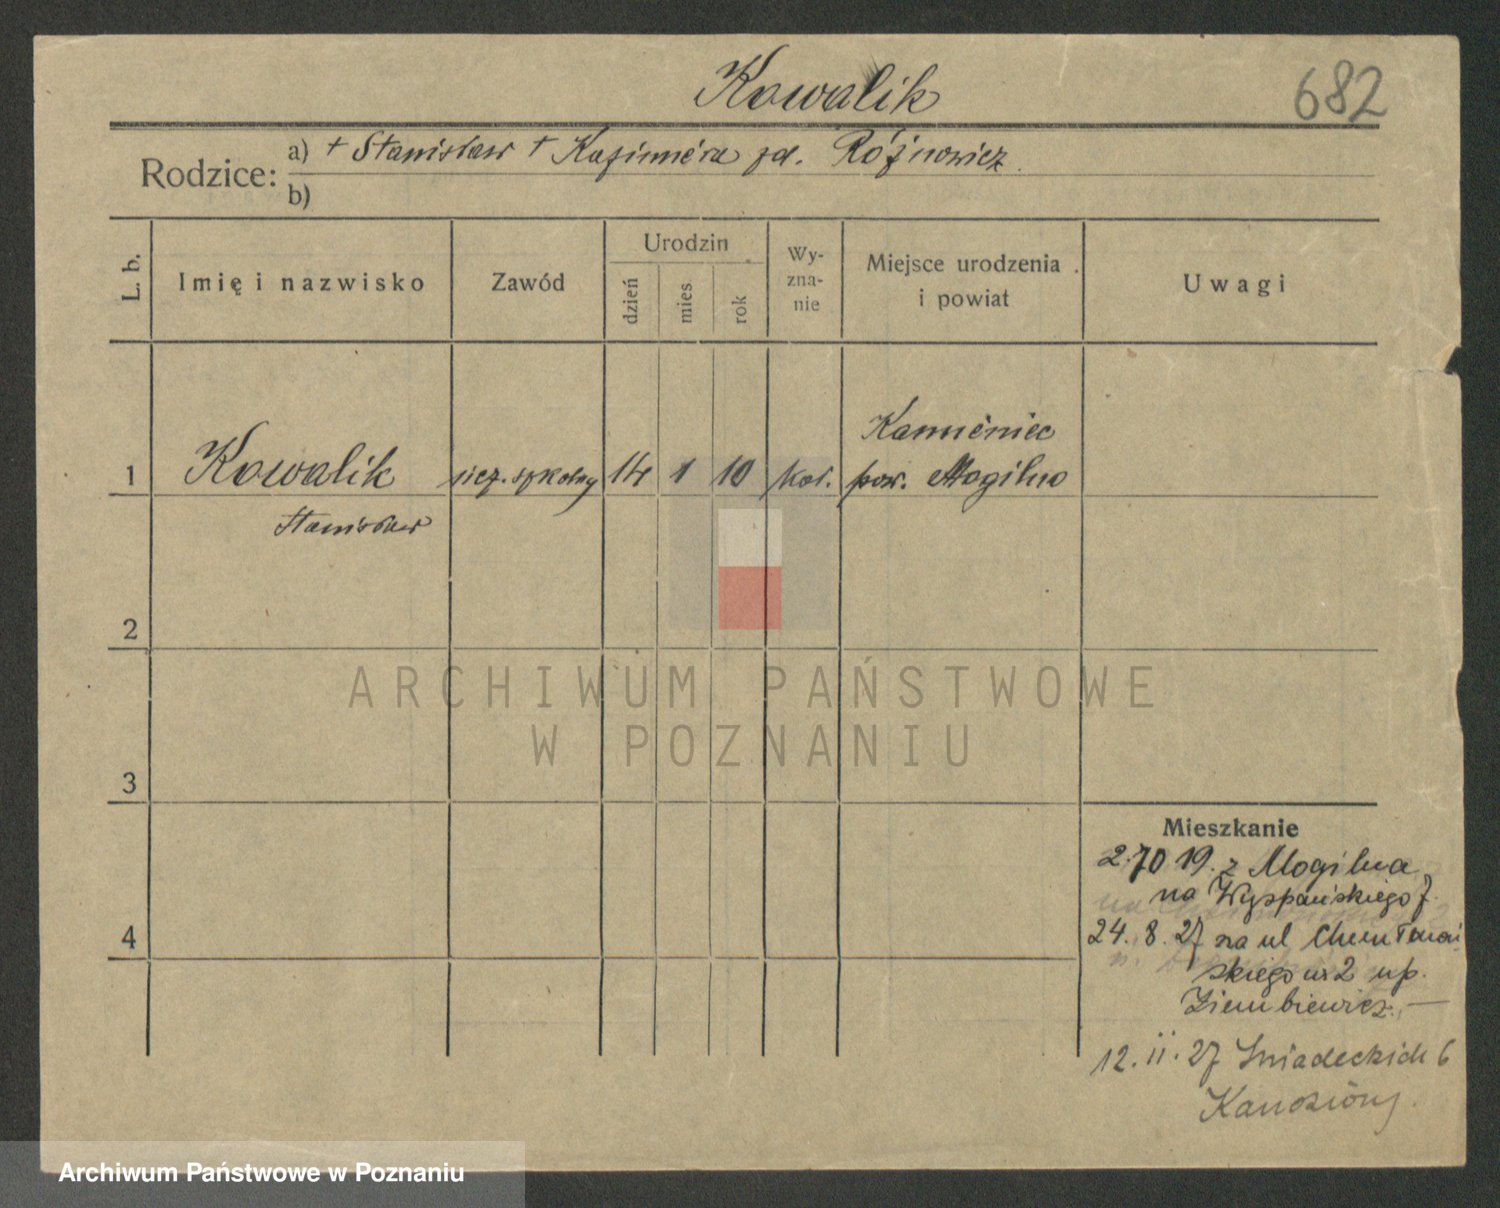 Kowalik
682
Rodzice: a) + Stanisław + Kazimiera zd. Różnowicz
b)
L. b.
Imię i nazwisko
Zawód
Urodzin
dzień
mies
rok
Wy-
zna-
nie
Miejsce urodzenia
i powiat
Uwagi
Kamieniec
1 Kowalik ucz. szkolny 14 1 10 kat. pow. Mogilno
Stanisław
2
ARCHIWUM PAŃSTWOWE
W POZNANIU
3
Mieszkanie
2.10 19. z Mogilna
na Wyspańskiego 7.
4
24. 8. 27 na ul
skiego nr 2 up.
Ziembiewicz. —
12. 11. 27 Śniadeckich 6
Archiwum Państwowe w Poznaniu